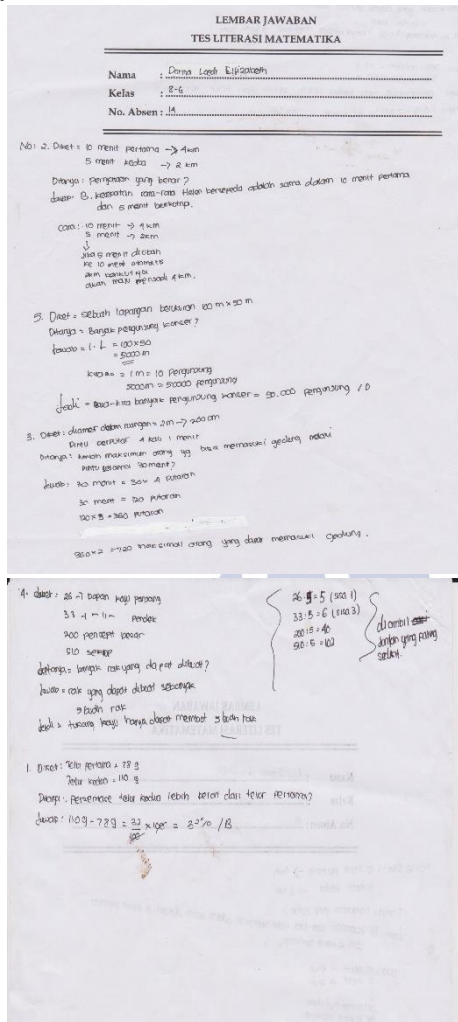 LEMBAR JAWABAN
TES LITERASI MATEMATIKA
Nama :
Kelas : 8-G
No. Absen : 14
No: 2. Diket = 10 menit pertama → 4km
5 menit kedua → 2 km
Ditanya : pernyataan yang benar?
Jawab: B. kecepatan rata-rata Helen bersepeda adalah sama dalam 10 menit pertama
dan 5 menit berikutnya.
cara: 10 menit → 4 km
5 menit → 2km
↓
Jika 5 menit diubah
ke 10 menit otomatis
2km
akan menjadi 4 km.
5. Diket = sebuah lapangan berukuran 100 m x 50 m
Ditanya = Banyak pengunjung konser?
Jawab = l . L = 100x50
= 5000 m
1m = 10 pengunjung
5000m = 50000 pengunjung
Jadi = kira-kira banyak pengunjung konser = 50.000 pengunjung / D
3. Diket : diameter dalam ruangan = 2m → 200 cm
Pintu berputar 4 kali 1 menit
Ditanya : maksimum orang yg bisa memasuki gedung melalui
pintu selama 30 menit?
Jawab: 30 menit = 30 x 4 putaran
30 menit = 120 putaran
120 x 3 = 360 putaran
360x2 = 720 maksimal orang yang dapat memasuki gedung.
4. diket : 26 → papan kayu panjang
33 → -11- pendek
200 penjepit besar
510 sekrup
ditanya = banyak rak yang dapat dibuat?
Jawab = rak yang dapat dibuat sebanyak
5 buah rak
Jadi = tukang kayu hanya dapat membuat 5 buah rak
26 : 5 = 5 (sisa 1)
33 : 5 = 6 (sisa 3)
200 : 5 = 40
510 : 5 = 102
diambil
yang paling
sedikit.
1. Diket : Telur pertama = 78 g
Telur kedua = 110 g
Ditanya : Persentase telur kedua lebih berat dari telur pertama?
Jawab : 110g - 78g = 32/100 x 100 = 32% / B